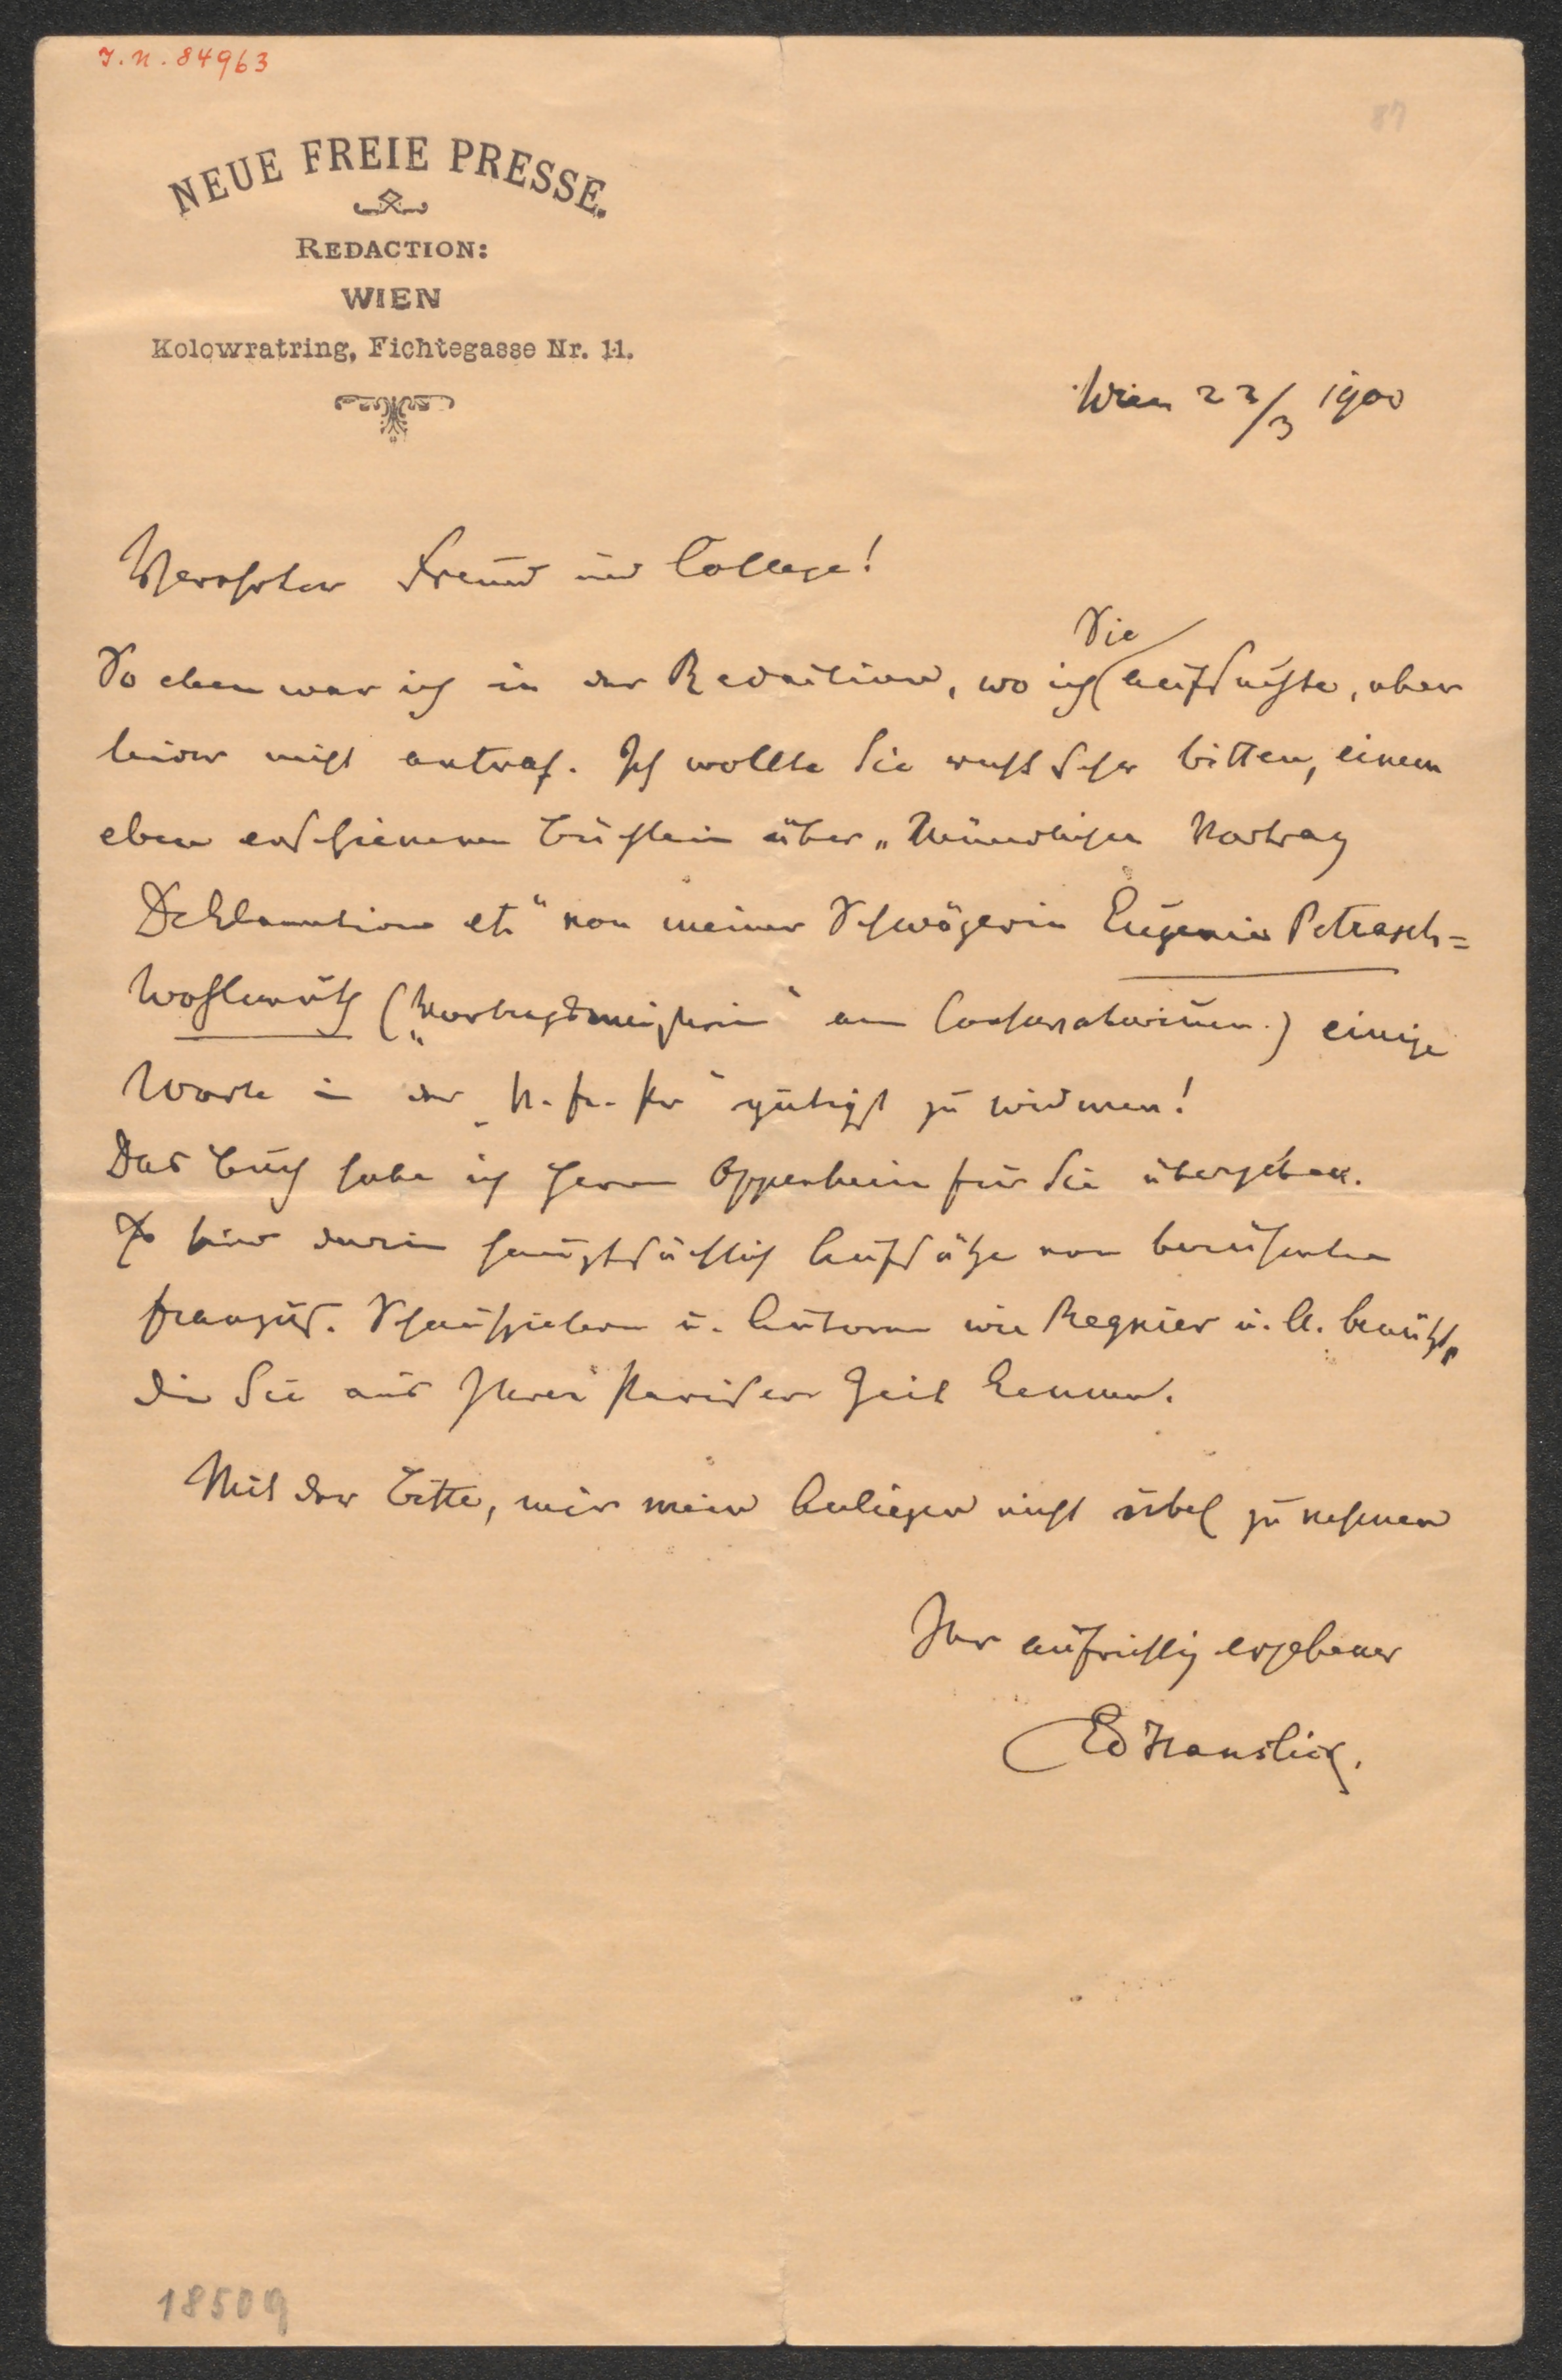 J. N. 84963
87
NEUE FREIE PRESSE.
REDACTION:
WIEN
Kolowratring, Fichtegasse Nr. 11.
Wien 22/3 1900
Verehrter Freund und College!
Sie
So eben war ich in der Redaction, wo ich aufsuchte, aber
leider nicht antraf. Ich wollte Sie recht sehr bitten, einem
eben erschienenen Büchlein über „Mündlichen Vortrag
Deklamation etc“ von meiner Schwägerin Eugenie Petrasch-
Wohlmuth („Vortragsmeisterin“ am Conservatorium.) einige
Worte in der „N. fr. Pr“ gütigst zu widmen!
Das Buch habe ich Herrn Oppenheim für Sie übergeben.
Es sind darin hauptsächlich Aufsätze von berühmten
französ. Schauspielern u. Autoren wie Regnier u. A. benützt,
die Sie aus Ihrer Pariser Zeit kennen.
Mit der Bitte, mir mein Anliegen nicht übel zu nehmen
Ihr aufrichtig ergebener
Ed Hanslick.
18509